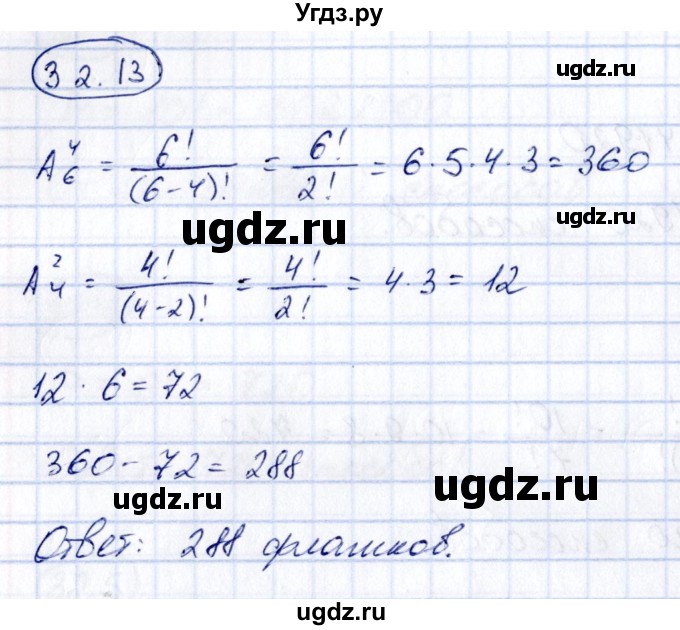 Угдз.ру
32.13
ugdz.ru
A₆⁴ = 6!/(6-4)! = 6!/2! = 6·5·4·3 = 360
ugdz.ru
ugdz.ru
A₄² = 4!/(4-2)! = 4!/2! = 4·3 = 12
12 · 6 = 72
360 - 72 = 288
ugdz.ru
ugdz.ru
Ответ: 288 флажков.
ugdz.ru
ugdz.ru